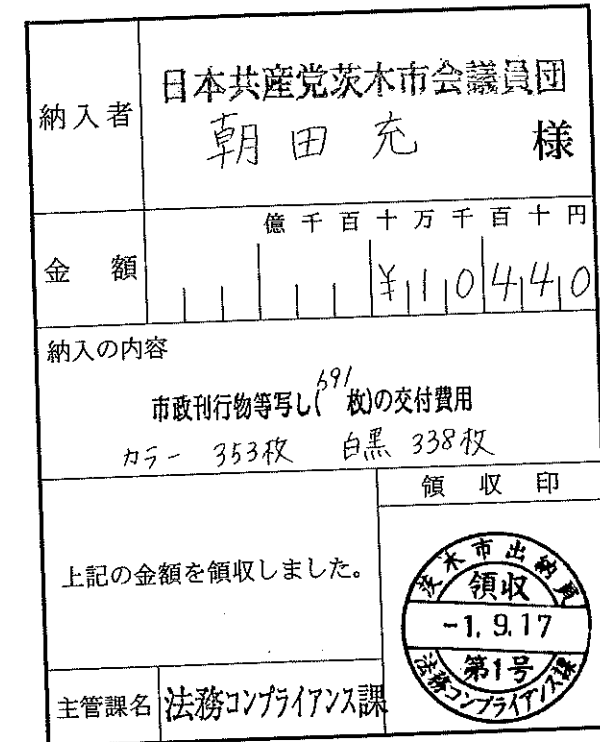 納入者
日本共産党茨木市会議員団
朝田充 様
億千百十万千百十円
金額
¥10440
納入の内容
市政刊行物等写し(691枚)の交付費用
カラー 353枚 白黒 338枚
領収印
上記の金額を領収しました。
茨木市出納員
領収
-1.9.17
第1号
法務コンプライアンス課
主管課名 法務コンプライアンス課